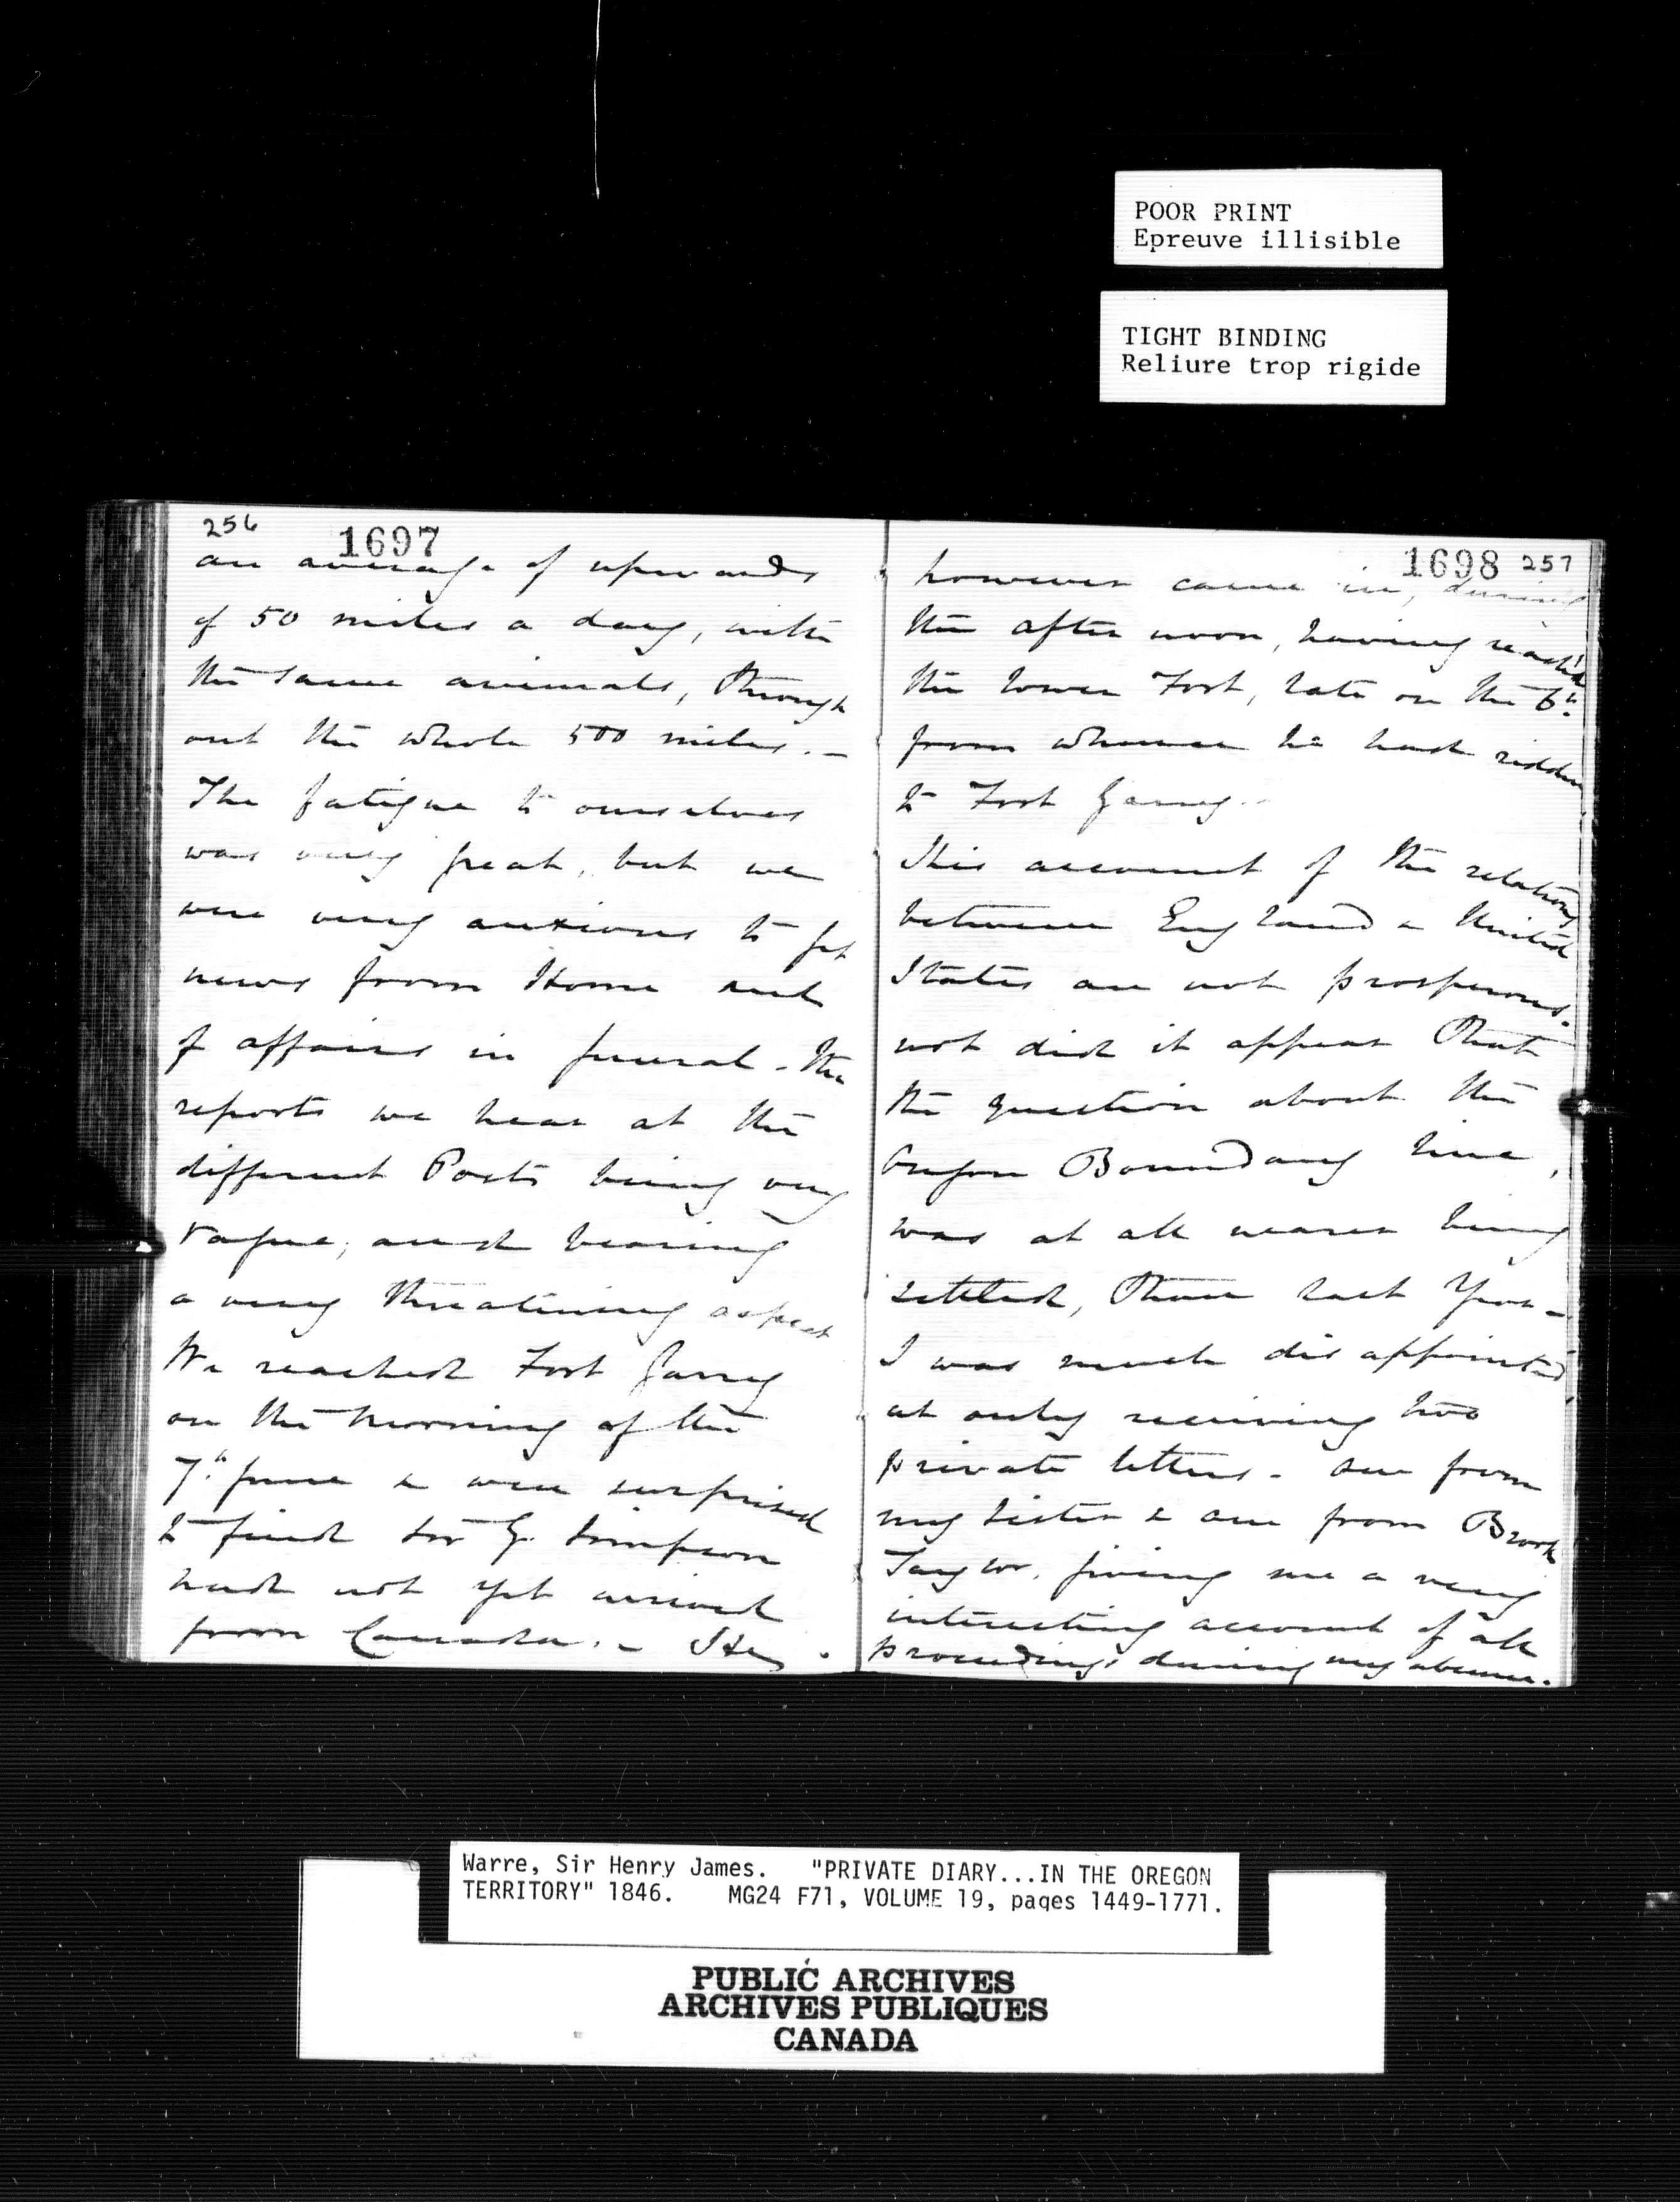 POOR PRINT
Epreuve illisible
TIGHT BINDING
Reliure trop rigide
256 1697
an average of upwards
of 50 miles a day, with
the same animals, through
out the whole 500 miles. –
The fatigue to ourselves
was very great, but we
were very anxious to get
news from Home and
of affairs in general – the
reports we hear at the
different Posts being very
vague, and bearing
a very threatening aspect
We reached Fort Garry
on the morning of the
7th June & were surprised
to find Sir G. Simpson
had not yet arrived
from Canada. – He
1698 257
however came in, during
the after noon, having reach'd
the lower Fort, late on the 6th
from whence he had ridden
to Fort Garry –
His account of the relations
between England & United
States are not prosperous.
not did it appear that
the question about the
Oregon Boundary line,
was at all nearer being
settled, than last Year –
I was much dis appointed
at only receiving two
private letters – one from
my sister & one from Brook
Taylor, giving me a very
interesting account of all
proceedings during my absence.
Warre, Sir Henry James. "PRIVATE DIARY...IN THE OREGON
TERRITORY" 1846. MG24 F71, VOLUME 19, pages 1449-1771.
PUBLIC ARCHIVES
ARCHIVES PUBLIQUES
CANADA